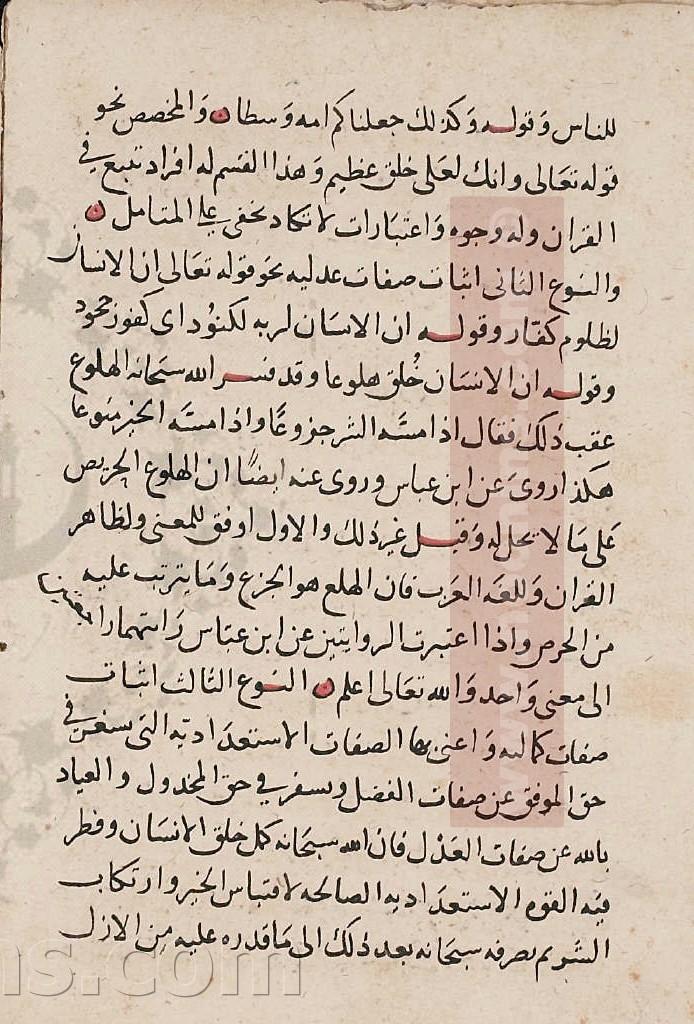 للناس وقوله وكذلك جعلناكم امه وسطا والمخصص نحو
قوله تعالى وانك لعلى خلق عظيم وهذا القسم له افراد تتبع في
القران وله وجوه واعتبارات لا تكاد تخفى على المتامل
والنوع الثانى اثبات صفات عدليه نحو قوله تعالى ان الانسان
لظلوم كفار وقوله ان الانسان لربه لكنود اى كفور جحود
وقوله ان الانسان خُلق هلوعا وقد فسر الله سبحانه الهلوع
عقب ذلك فقال اذا مسّه الشر جزوعًا واذا مسّه الخير منوعا
هكذا روى عن ابن عباس وروى عنه ايضًا ان الهلوع الحريص
على ما لا يحل له وقيل غير ذلك والاول اوفق للمعنى ولظاهر
القران وللغه العرب فان الهلع هو الجزع وما يترتب عليه
من الحرص واذا اعتبرت الروايتين عن ابن عباس رايتهما راجعتين
الى معنى واحد والله تعالى اعلم النوع الثالث اثبات
صفات كماليه واعنى بها الصفات الاستعداديه التى تسفر في
حق الموفق عن صفات الفضل وتسفر في حق المخذول والعياذ
بالله عن صفات العدل فان الله سبحانه كمل خلق الانسان وفطر
فيه القوه الاستعداديه الصالحه لاقتباس الخير وارتكاب
الشر ثم يصرفه سبحانه بعد ذلك الى ما قدره عليه من الازل